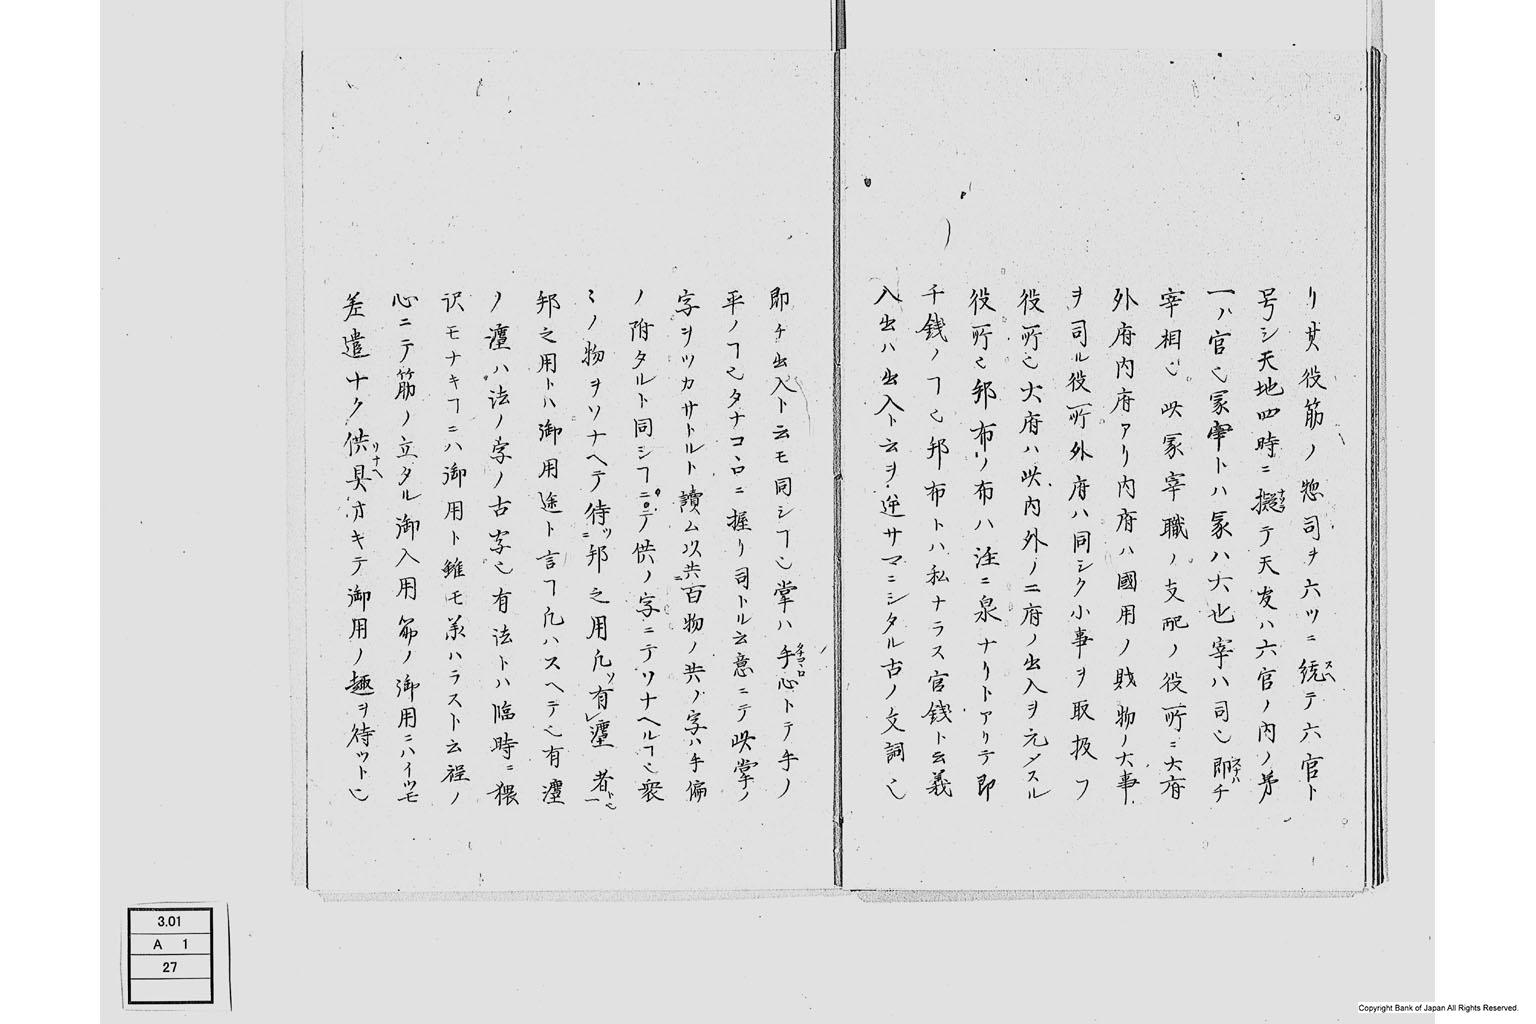 リ其役筋ノ惣司ヲ六ツニ統テ六官ト
号シ天地四時ニ擬テ天友ハ六官ノ内ノ第
一ノ官也冢宰トハ冢ハ大也宰ハ司也即チ
宰相也此冢宰職ノ支配ノ役所ニ大府
外府内府アリ内府ハ國用ノ財物ノ大事
ヲ司ル役所外府ハ同シク小事ヲ取扱フ
役所也大府ハ此内外ノ二府ノ出入ヲ元〆スル
役所也邦布ノ布ハ注ニ泉ナリトアリテ即
千錢ノヿ也邦布トハ私ナラス官錢ト云義
入出ハ出入ト云ヲ逆サマニシタル古ノ文詞也
即チ出入ト云モ同シヿ也掌ハ手心トテ手ノ
平ノヿ也タナコヽロニ握リ司トル云意ニテ此掌ノ
字ヲツカサトルト讀ム以共百物ノ共ノ字ハ手偏
ノ附タルト同シヿニテ供ノ字ニテソナヘルヿ也衆
ミノ物ヲソナヘテ待ツ邦之用凡ソ有瀍者
邦之用トハ御用途ト言フ凡ハスヘテ也有瀍
ノ瀍ハ法ノ字ノ古字也有法トハ臨時ニ猥
沢モナキヿニハ御用ト雖モ羕ハラスト云程ノ
心ニテ筋ノ立タル御入用筋ノ御用ニハイツモ
差遣ナク供具オキテ御用ノ趣ヲ待ツト也
3.01
A 1
27
Copyright Bank of Japan All Rights Reserved.